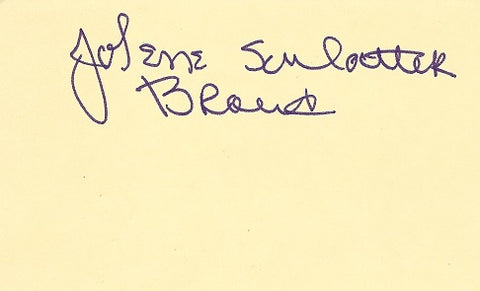 Jolene Schlatter
Brand